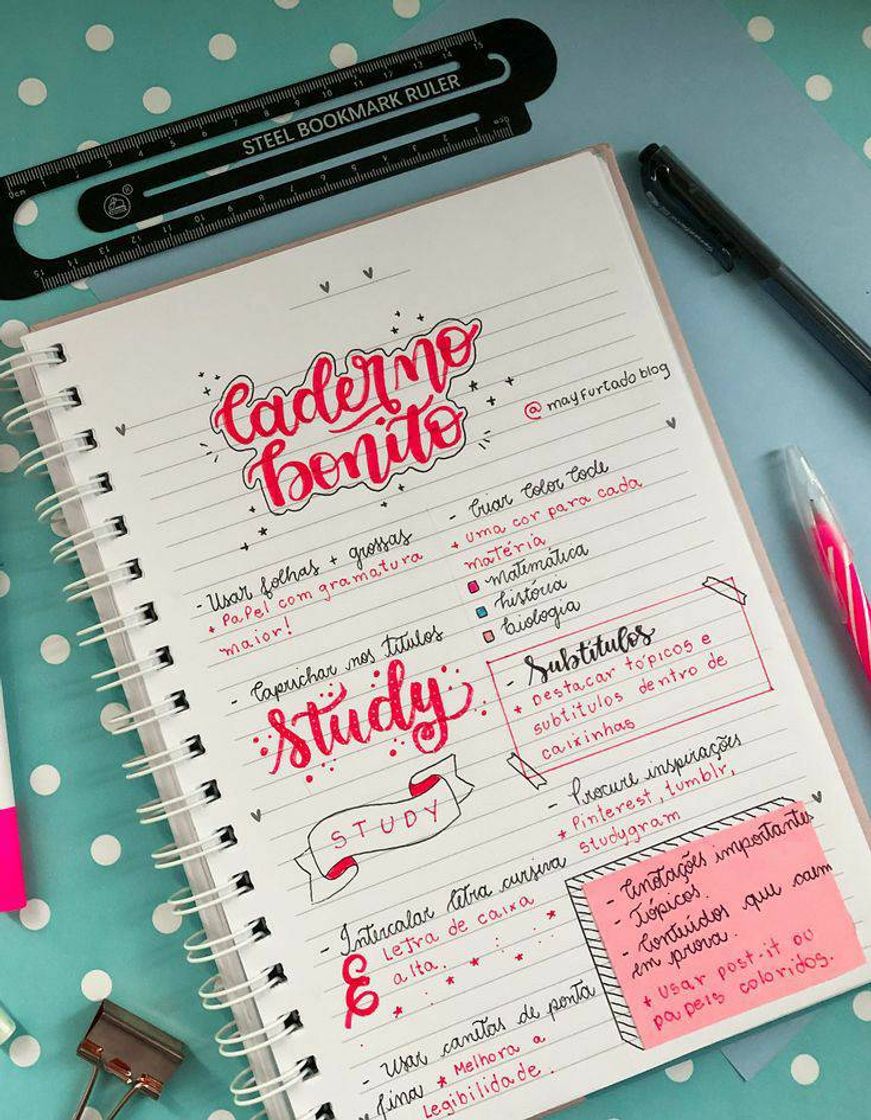 STEEL BOOKMARK RULER
Caderno
bonito
@mayfurtadoblog
- Usar folhas + grossas
+ Papel com gramatura
maior!
- Caprichar nos títulos
Study
STUDY
- Intercalar letra cursiva
E Letra de caixa
alta.
- Usar canitas de ponta
fina * Melhora a
Legibilidade.
- Criar Color Code
+ uma cor para cada
matéria
matemática
história
biologia
- Subtítulos
+ Destacar tópicos e
subtítulos dentro de
caixinhas
- Procure inspirações
* Pinterest, tumblr,
studygram
- Anotações importantes
- Tópicos.
- Conteúdos que caem
em prova.
+ Usar post-it ou
papeis coloridos.